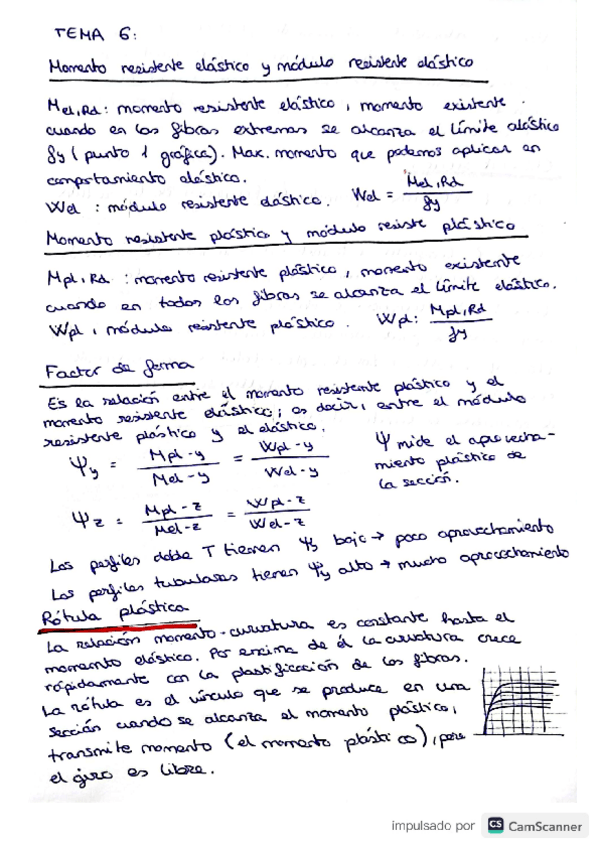 TEMA 6:
Momento resistente elástico y módulo resistente elástico
Mel,Rd: momento resistente elástico, momento existente
cuando en las fibras extremas se alcanza el límite elástico
fy (punto 1 gráfica). Max. momento que podemos aplicar en
comportamiento elástico.
Wel : módulo resistente elástico. Wel = Mel,Rd / fy
Momento resistente plástico y módulo resiste plástico
Mpl,Rd : momento resistente plástico, momento existente
cuando en todas las fibras se alcanza el límite elástico.
Wpl, módulo resistente plástico. Wpl: Mpl,Rd / fy
Factor de forma
Es la relación entre el momento resistente plástico y el
momento resistente elástico; es decir, entre el módulo
resistente plástico y el elástico.
Ψy = Mpl-y / Mel-y = Wpl-y / Wel-y
Ψ mide el aprovecha-
miento plástico de
la sección.
Ψz = Mpl-z / Mel-z = Wpl-z / Wel-z
Los perfiles doble T tienen Ψy bajo → poco aprovechamiento
Los perfiles tubulares tienen Ψy alto → mucho aprovechamiento
Rótula plástica
La relación momento-curvatura es constante hasta el
momento elástico. Por encima de él la curvatura crece
rápidamente con la plastificación de las fibras.
La rótula es el vínculo que se produce en una
sección cuando se alcanza el momento plástico,
transmite momento (el momento plástico), pero
el giro es libre.
impulsado por CS CamScanner